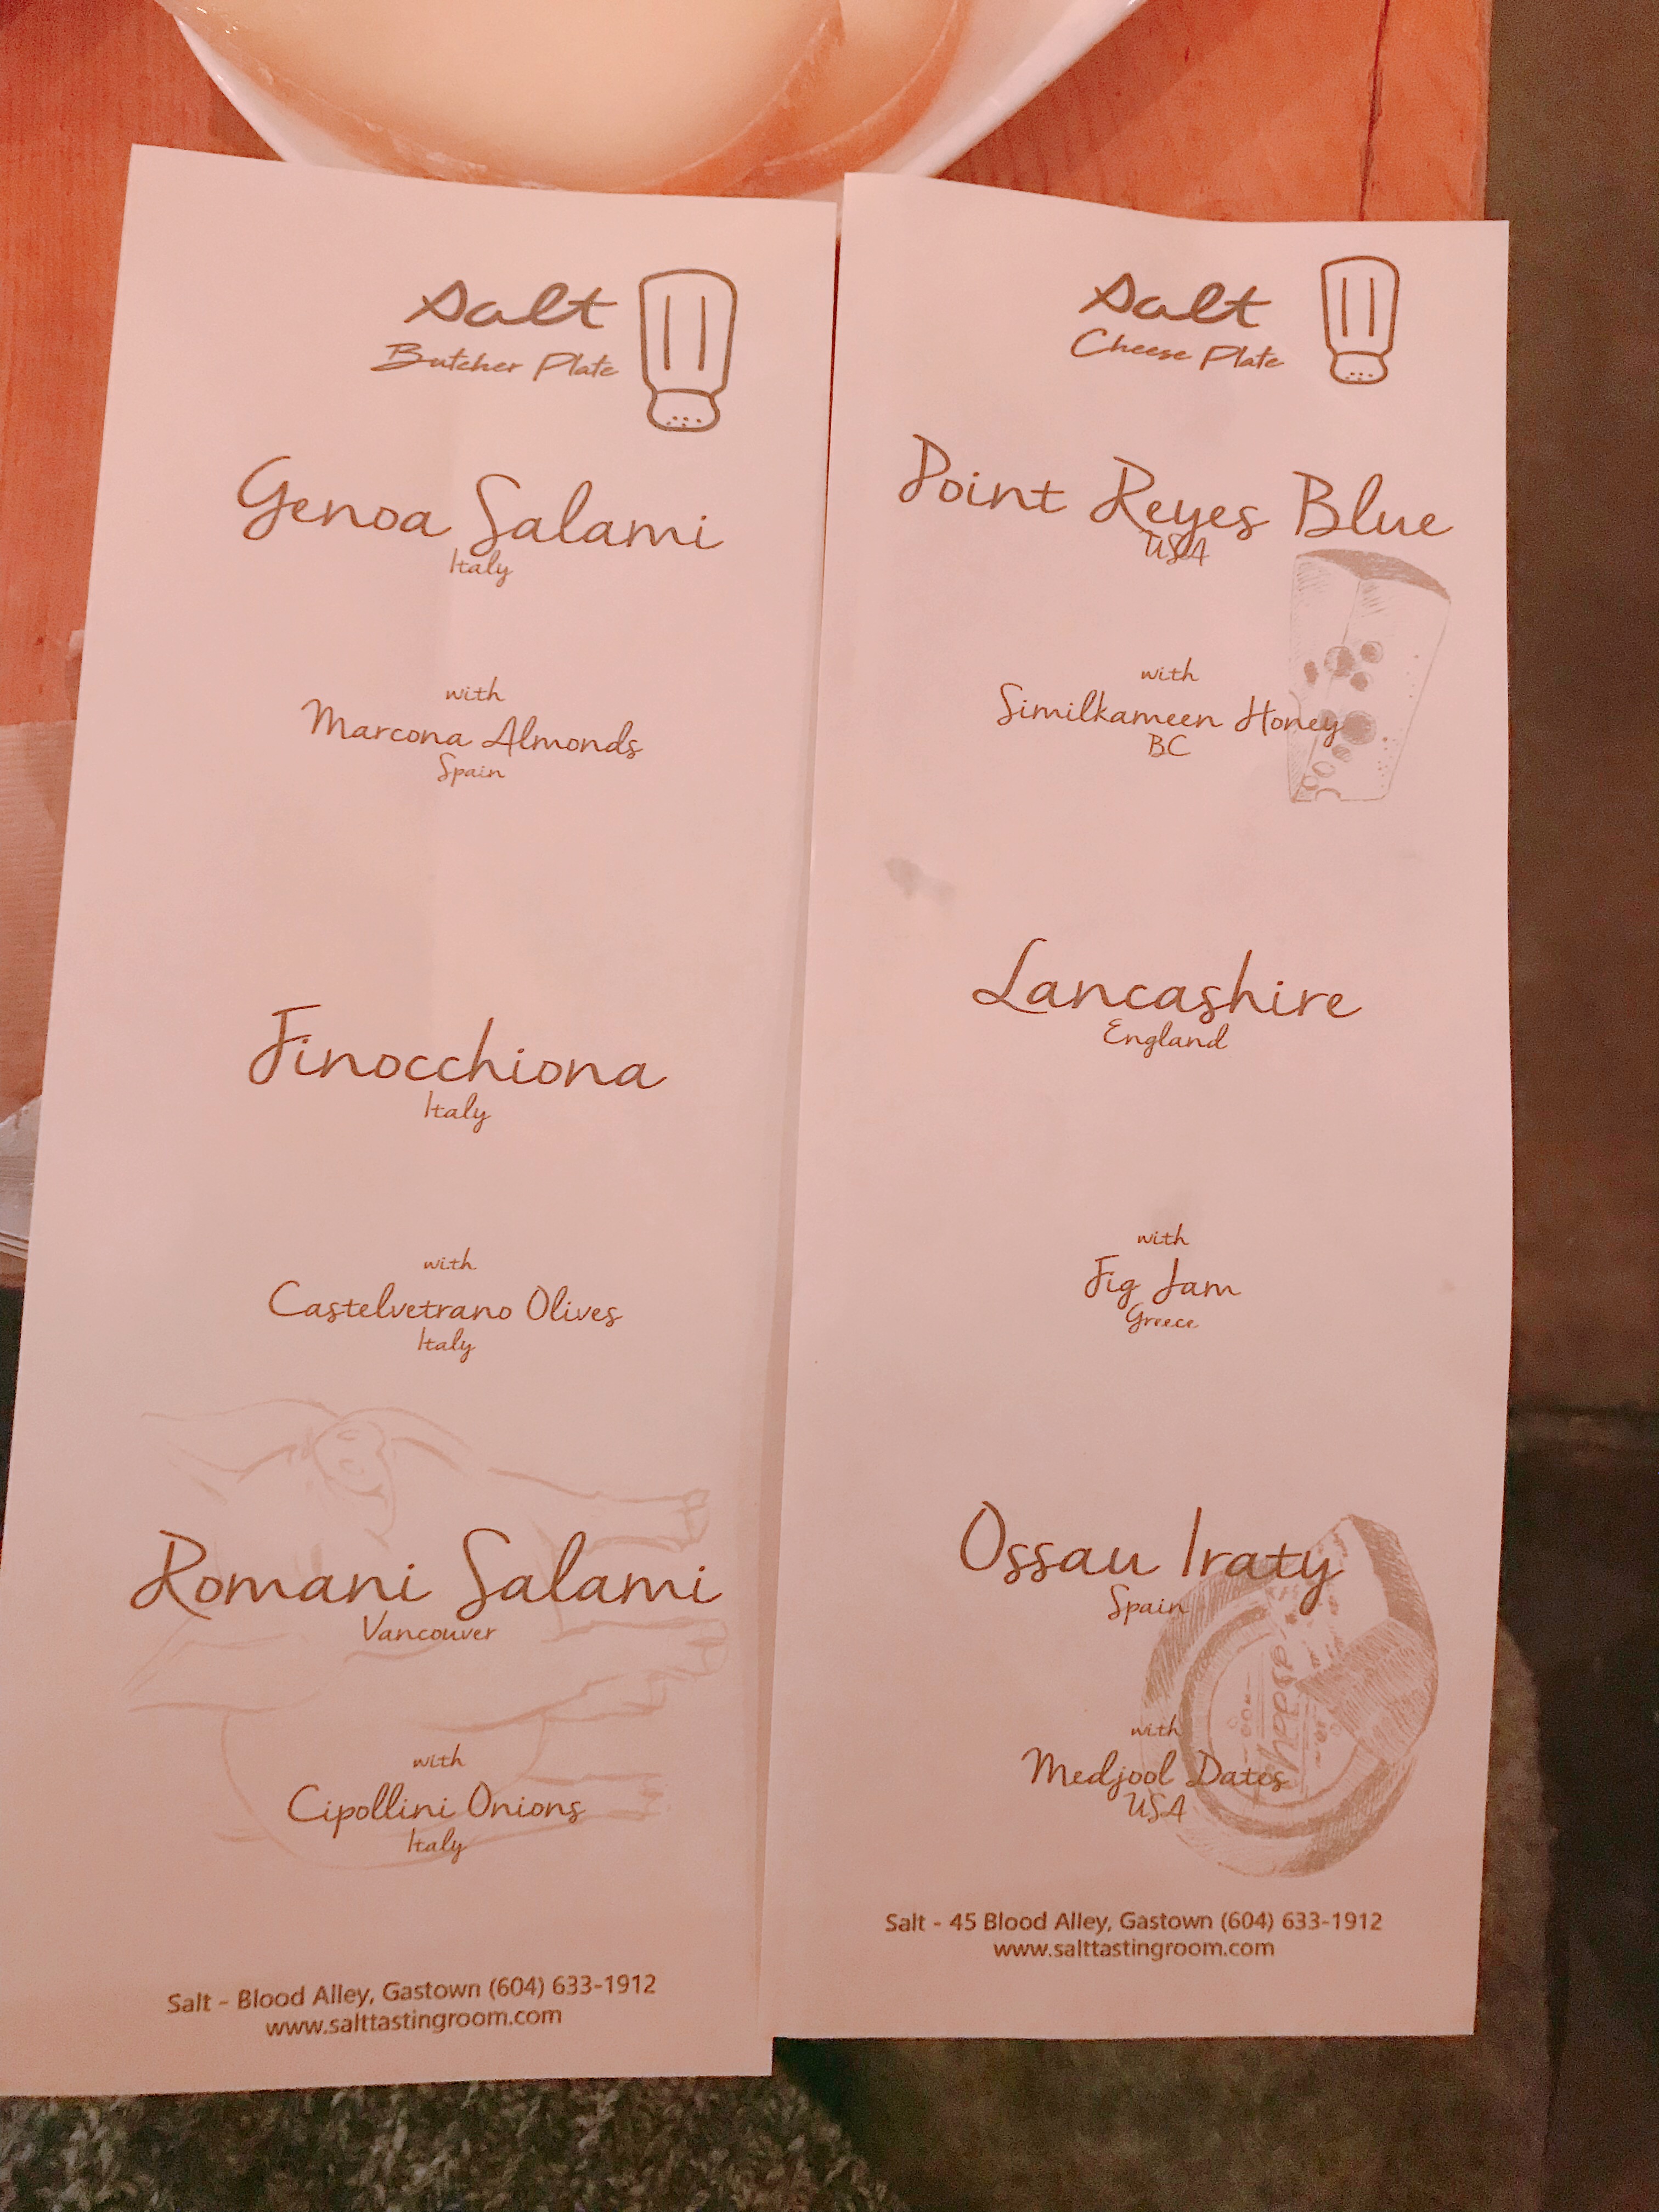 Salt
Butcher Plate
Genoa Salami
Italy
with
Marcona Almonds
Spain
Finocchiona
Italy
with
Castelvetrano Olives
Italy
Romani Salami
Vancouver
with
Cipollini Onions
Italy
Salt - Blood Alley, Gastown (604) 633-1912
www.salttastingroom.com
Salt
Cheese Plate
Point Reyes Blue
USA
with
Similkameen Honey
BC
Lancashire
England
with
Fig Jam
Greece
Ossau Iraty
Spain
with
Medjool Dates
USA
Cheese
Salt - 45 Blood Alley, Gastown (604) 633-1912
www.salttastingroom.com